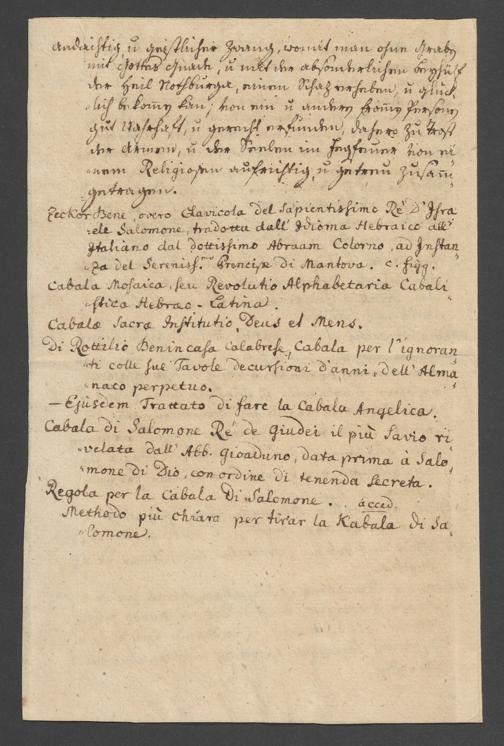 andächtig, u geistlicher Zwang, womit man ohne Grabe
mit Gottes Gnade, u mit der absonderlichen beyhülf
der Heil Nothburga, einen Schaz erheben, u glück„
„lich bekomen kan; von ein u andern from̄en Persone
gut wahrhaft, u gerecht erfunden, dahero zu trost
der Armen, u der Seelen im Fegfeuer von ei„
„nem Religiosen aufrichtig, u getreu zusam„
„getragen.
Zeckor Bene, overo Clavicola del sapientissimo Re' D'Isra„
„ele Salomone, tradotta dall' Idioma Hebraico all'
Italiano dal dottissimo Abraam Colorno, ad Instan„
„za del Sereniss.mo Principe di Mantova. c. figg.
Cabala Mosaica, seu Revolutio Alphabetaria Cabali„
„stica Hebræo-Latina.
Cabalæ Sacræ Institutio, Deus et Mens.
Di Rottilio Benincasa Calabrese, Cabala per l'ignoran„
„ti colle sue Tavole decursioni d'anni, dell' Alma„
„naco perpetuo.
— Ejusdem Trattato di fare la Cabala Angelica.
Cabala di Salomone Re' de Giudei il più savio ri„
„velata dall' Abb. Gioaduno, data prima à Salo„
„mone di Dio, con ordine di tenenda secreta.
Regola per la Cabala di Salomone. . . acced.
Methodo più chiara per tirar la Kabala di Sa„
„lomone.